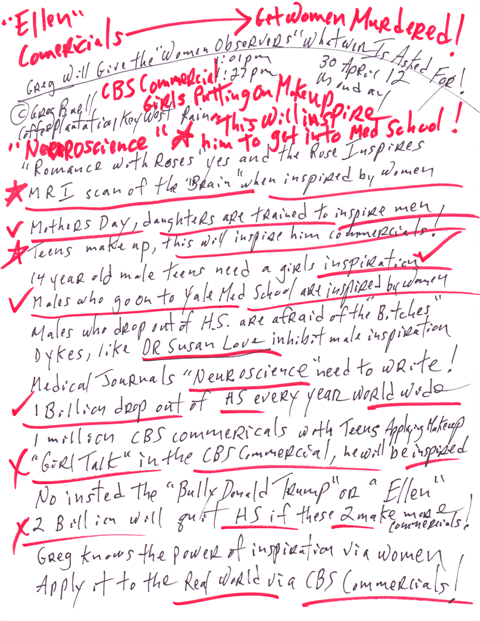 "Ellen"
Comericials → Get Women Murdered!
Greg Will Give the "Women Observers" Whatever Is Asked For!
1:01pm
30 April 12
CBS Commercial 1:27pm
Monday
© Greg Buell
Girls Putting on Makeup
Coffeeplantation Key West Rain
"This will inspire
"Neuroscience" him to get into Med School!
"Romance with Roses" yes and the Rose Inspires
MRI scan of the "Brain" when inspired by women
Mothers Day, daughters are trained to inspire men,
Teens make up, this will inspire him commercials!
14 year old male teens need a girls inspiration
Males who go on to Yale Med School are inspired by women
Males who drop out of H.S. are afraid of the "Bitches"
Dykes, like DR Susan Love inhibit male inspiration
Medical Journals "Neuroscience" need to write!
1 Billion drop out of HS every year world wide
1 million CBS commericals with Teens Applying Makeup
"Girl Talk" in the CBS Commercial, he will be inspired
No insted the "Bully Donald Trump" or a "Ellen"
2 Billion will quit HS if these 2 make more commercials!
Greg knows the power of inspiration via women
Apply it to the Real World via CBS Commercials!